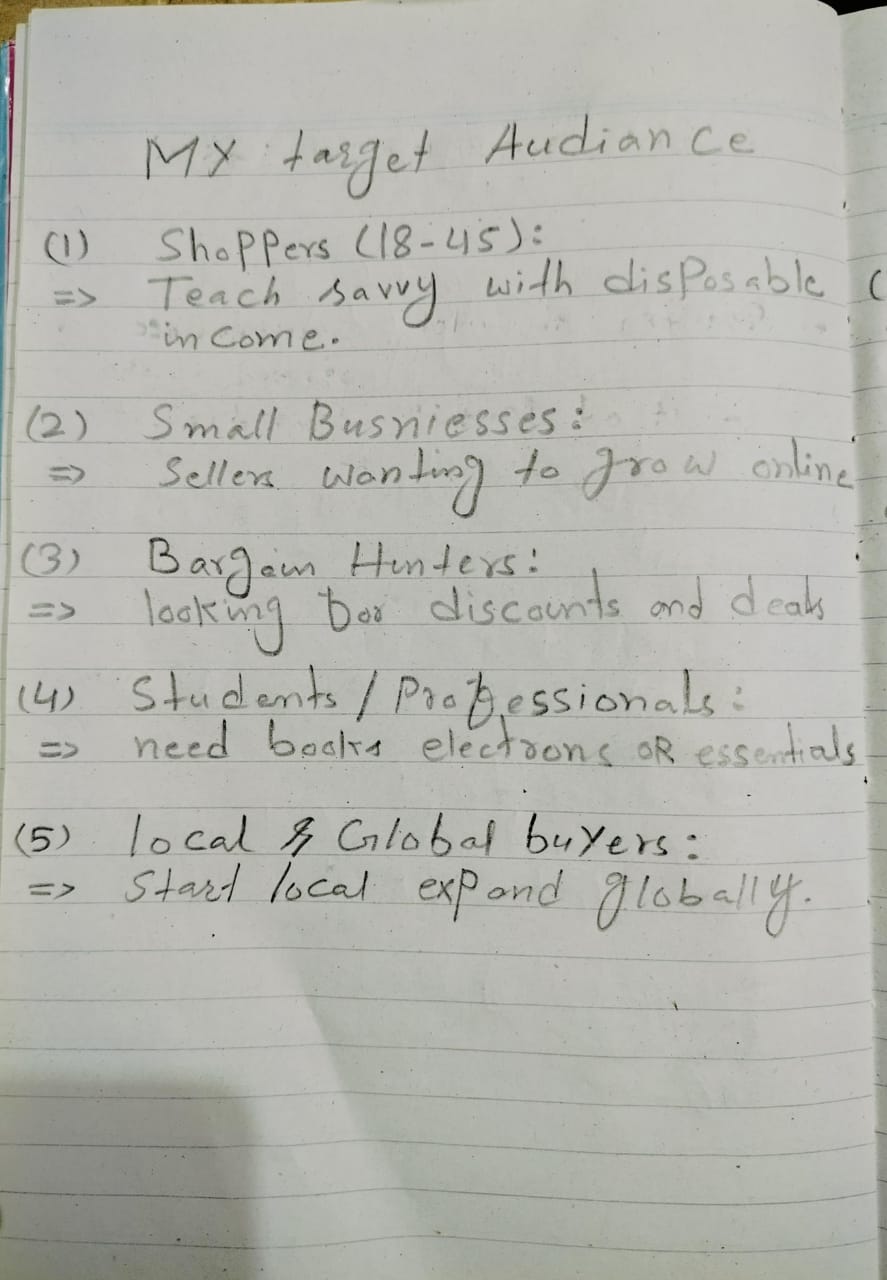 My target Audiance
(1) Shoppers (18-45):
=> Teach savvy with disposable
income.
(2) Small Busniesses:
=> Sellers wanting to grow online
(3) Bargain Hunters:
=> looking for discounts and deals
(4) Students / Professionals:
=> need books electrons OR essentials
(5) local & Global buyers:
=> Start local expand globally.